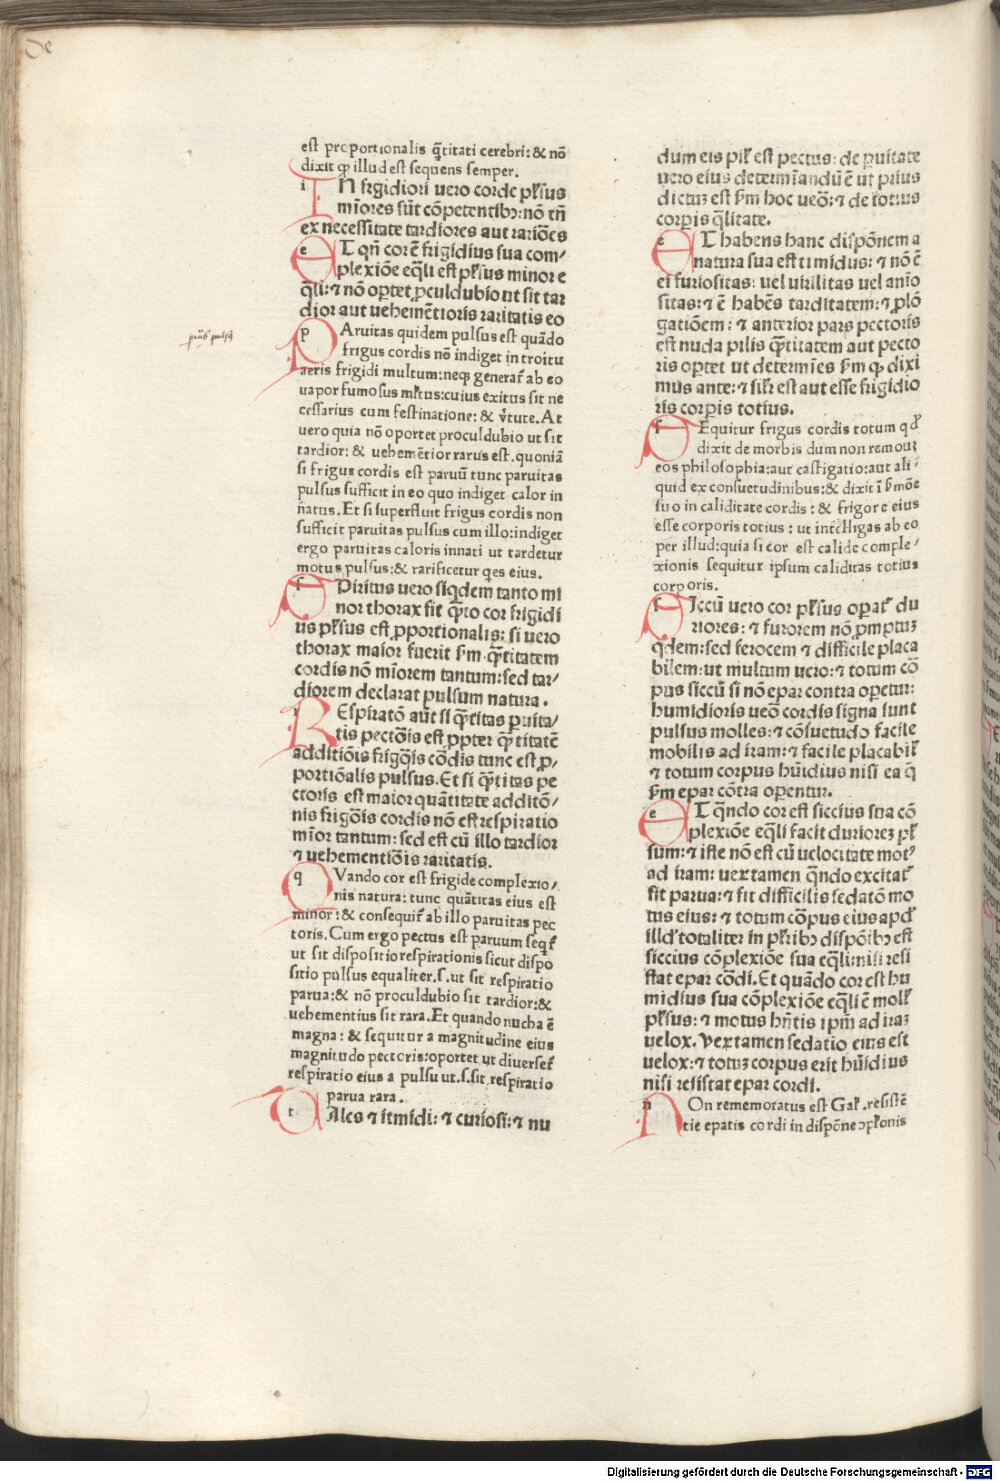 De
est proportionalis q̃titati cerebri: & nõ
dixit ꝙ illud est sequens semper.
IN frigidiori uero corde pl̃sus
mĩores sũt cõpetentibꝫ: nõ tñ
ex necessitate tardiores aut rariões
ET qñ cor ẽ frigidius sua com⸗
plexiõe eq̃li est pl̃sus minor e
q̃li: ⁊ nõ oꝑtet ꝓculdubio ut sit tar
dior aut uehemẽtioris raritatis eo
PAruitas quidem pulsus est quãdo
frigus cordis nõ indiget in troitu
aeris frigidi multum: neqꝫ generat᷑ ab eo
uapor fumosus ml̃tus: cuius exitus sit ne
cessarius cum festinatione: & v̾tute. At
uero quia nõ oportet proculdubio ut sit
tardior: & uehemẽtior rarus est. quoniã
si frigus cordis est paruũ tunc paruitas
pulsus sufficit in eo quo indiget calor in
ñatus. Et si superfluit frigus cordis non
sufficit paruitas pulsus cum illo: indiget
ergo paruitas caloris innati ut tardetur
motus pulsus: & rarificetur q̃es eius.
SPiritus uero siq̃dem tanto mi
nor thorax fit q̃to cor frigidi
us pl̃sus est ꝓportionalis: si uero
thorax maior fuerit ẜm q̃titatem
cordis nõ mĩorem tantum: sed tar⸗
diorem declarat pulsum natura.
REspiratõ aũt si q̃titas ꝑuita⸗
tis pectoĩs est ꝓpter q̃titatẽ
additiõis frigõis cõdis tunc est ꝓ⸗
portiõalis pulsus. Et si q̃titas pe
ctoris est maior quãtitate additõ⸗
nis frigõis cordis nõ est respiratio
mĩor tantum: sed est cũ illo tardior
⁊ uehementiõis raritatis.
QVando cor est frigide complexio⸗
nis natura: tunc quãtitas eius est
minor: & consequit᷑ ab illo paruitas pec
toris. Cum ergo pectus est paruum seq̃t᷑
ut sit dispositio respirationis sicut dispo
sitio pulsus equaliter. s. ut sit respiratio
parua: & nõ proculdubio sit tardior: &
uehementius sit rara. Et quando nucha ẽ
magna: & sequitur a magnitudine eius
magnitudo pectoris: oportet ut diuersef᷑
respiratio eius a pulsu ut. s. sit respiratio
parua rara.
TAles ⁊ itmidi: ⁊ curiosi: ⁊ nu
dum eis pil̃ est pectus: de ꝑuitate
uero eius determĩandũ ẽ ut prius
dictuꝫ est ẜm hoc ueõ: ⁊ de totius
corꝑis q̃litate.
ET habens hanc dispõnem a
natura sua est timidus: ⁊ nõ ẽ
ei furiositas: uel uirilitas uel anĩo
sitas: ⁊ ẽ habẽs tarditatem: ⁊ ꝓlõ
gatiõem: ⁊ anterior pars pectoris
est nuda pilis q̃titatem aut pecto
ris oꝑtet ut determĩes ẜm ꝙ dixi
mus ante: ⁊ sil̃r est aut esse frigidio
ris corꝑis totius.
SEquitur frigus cordis totum qđ
dixit de morbis dum non remouꝫ
eos philosophia: aut castigatio: aut ali⸗
quid ex consuetudinibus: & dixit ĩ ẜmõe
suo in caliditate cordis: & frigore eius
esse corporis totius: ut intelligas ab eo
per illud: quia si cor est calide comple⸗
xionis sequitur ipsum caliditas totius
corporis.
SIccũ uero cor pl̃sus oꝑat᷑ du
riores: ⁊ furorem nõ ꝓmptuꝫ
q̃dem: sed ferocem ⁊ difficile placa
bilem: ut multum uero: ⁊ totum cõ
pus siccũ si nõ epar contra oꝑetur:
humidioris ueõ cordis signa sunt
pulsus molles: ⁊ cõsuetudo facile
mobilis ad iram: ⁊ facile placabil̃
⁊ totum corpus hũidius nisi ea q̃
ẜm epar cõtra oꝑentur.
ET qñdo cor est siccius sua cõ
plexiõe eq̃li facit durioreꝫ pl̃
sum: ⁊ iste nõ est cũ uelocitate mot⁹
ad iram: uextamen qñdo excitat᷑
fit parua: ⁊ fit difficilis sedatõ mo
tus eius: ⁊ totum cõpus eius apđ
illđ totaliter in pl̃ribꝫ dispõibꝫ est
siccius cõplexiõe sua eq̃li nisi resi
stat epar cõdi. Et quãdo cor est hu
midius sua cõplexiõe eq̃li ẽ moll̃
pl̃sus: ⁊ motus hñtis ipm̃ ad iraꝫ
uelox. Vextamen sedatio eius est
uelox: ⁊ totuꝫ corpus erit hũidius
nisi resistat epar cordi.
NOn rememoratus est Gal̃. resistẽ
tie epatis cordi in dispõne ꝯpl̃onis
Digitalisierung gefördert durch die Deutsche Forschungsgemeinschaft - DFG